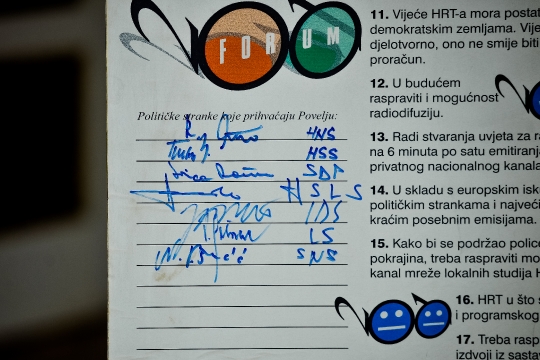 FORUM
Političke stranke koje prihvaćaju Povelju:
HNS
HSS
Ivica Račan SDP
HSLS
IDS
LS
SNS
11. Vijeće HRT-a mora postat
demokratskim zemljama. Vije
djelotvorno, ono ne smije biti
proračun.
12. U budućem
raspraviti i mogućnost
radiodifuziju.
13. Radi stvaranja uvjeta za ra
na 6 minuta po satu emitiranj
privatnog nacionalnog kanala
14. U skladu s europskim isk
političkim strankama i najveći
kraćim posebnim emisijama.
15. Kako bi se podržao polic
pokrajina, treba raspraviti mo
kanal mreže lokalnih studija H
16. HRT u što s
i programskog
17. Treba rasp
izdvoji iz sasta